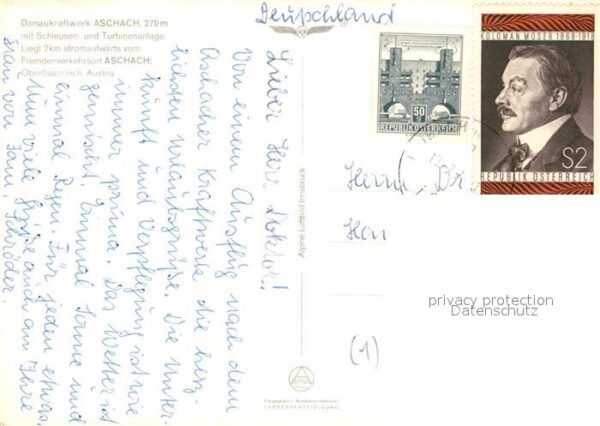 Donaukraftwerk ASCHACH, 270 m
mit Schleusen- und Turbinenanlage.
Liegt 2 km stromaufwärts vom
Fremdenverkehrsort ASCHACH;
Oberösterreich, Austria
Deutschland
Lieber Herr Doktor!
Von einem Ausflug nach dem
Aschacher Kraftwerk die herz-
lichsten Urlaubsgrüße. Die Unter-
kunft und Verpflegung ist wie
immer prima. Das Wetter ist
gemischt. Einmal Sonne und
einmal Regen. Für jeden etwas.
Nun viele Grüße auch an Ihre
Frau von Fam. Schröder.
Alpine Luftbild Innsbruck
50
REPUBLIK ÖSTERREICH
KOLOMAN MOSER 1868-1918
S2
REPUBLIK ÖSTERREICH
Herrn Dr
(1)
privacy protection
Datenschutz
LANDESVERTEIDIGUNG